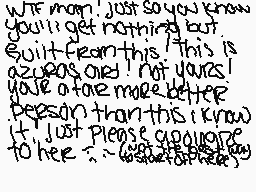 WTF man! just so you know
you'll get nothing but
guilt from this! this is
azuras ond! not yours!
you're a far more better
person than this i know
it! just please apologize
to her
(not the best way
to start off here)